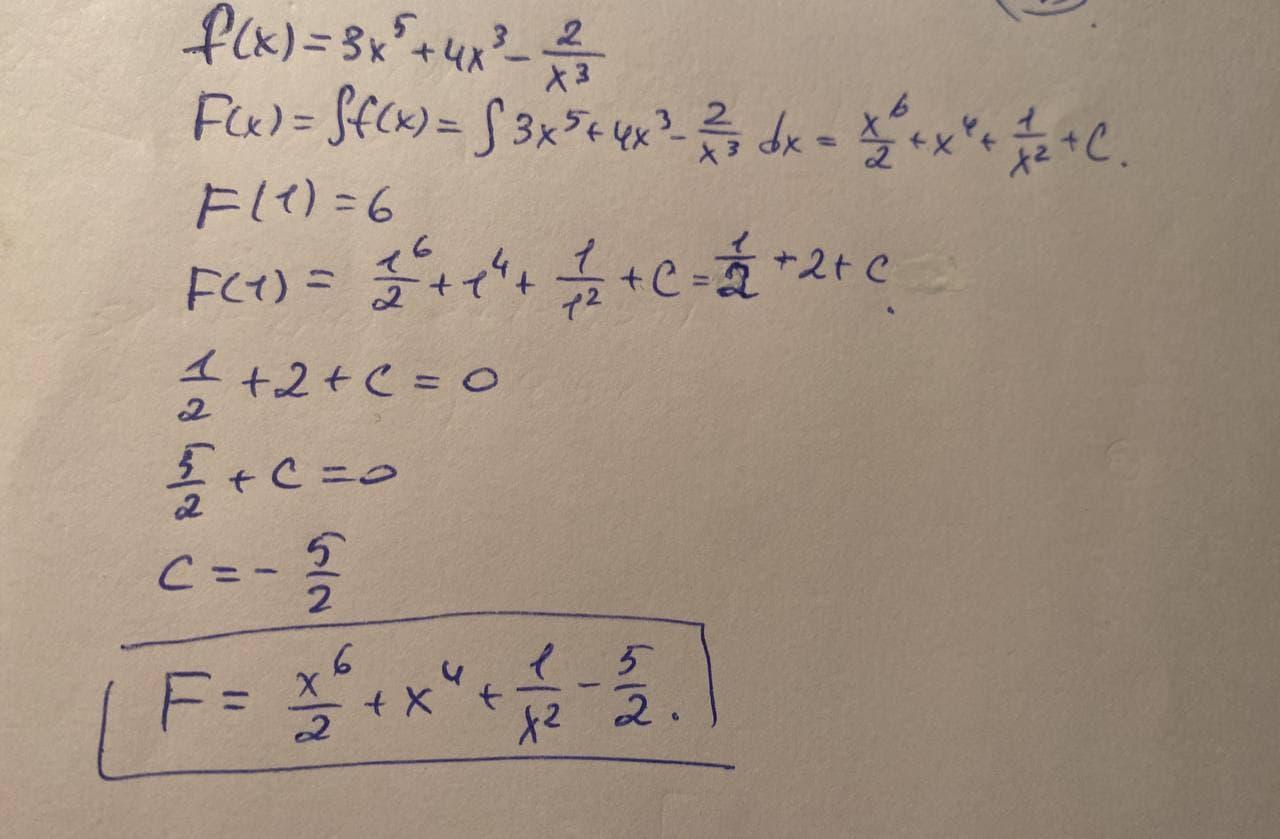 f(x) = 3x⁵ + 4x³ - 2/x³
F(x) = ∫f(x) = ∫ 3x⁵ + 4x³ - 2/x³ dx = x⁶/2 + x⁴ + 1/x² + C.
F(1) = 6
F(1) = 1⁶/2 + 1⁴ + 1/1² + C = 1/2 + 2 + C.
1/2 + 2 + C = 0
5/2 + C = 0
C = - 5/2
F = x⁶/2 + x⁴ + 1/x² - 5/2.